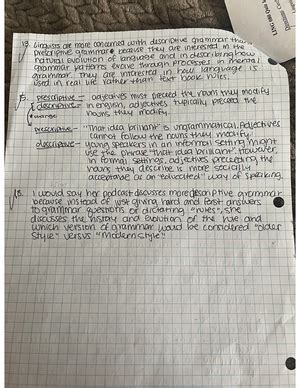 13. Linguists are more concerned with descriptive grammar than
prescriptive grammar because they are interested in the
natural evolution of language and in describing how
grammar patterns evolve through processes in mental
grammar. They are interested in how language is
used in real life rather than text book rules.
15. prescriptive - adjectives must precede the nouns they modify
descriptive - in english, adjectives typically precede the
nouns they modify.
prescriptive - "That idea brilliant" is ungrammatical. Adjectives
cannot follow the nouns they modify.
descriptive - young speakers in an informal setting might
use the phrase "that idea brilliant". However,
in formal settings, adjectives preceding the
nouns they describe is more socially
acceptable or an "educated" way of speaking.
18. I would say her podcast discusses more descriptive grammar
because instead of just giving hard and fast answers
to grammar questions or dictating "rules", she
discusses the history and evolution of the rule and
which version of grammar would be considered "older
style" versus "modern style"